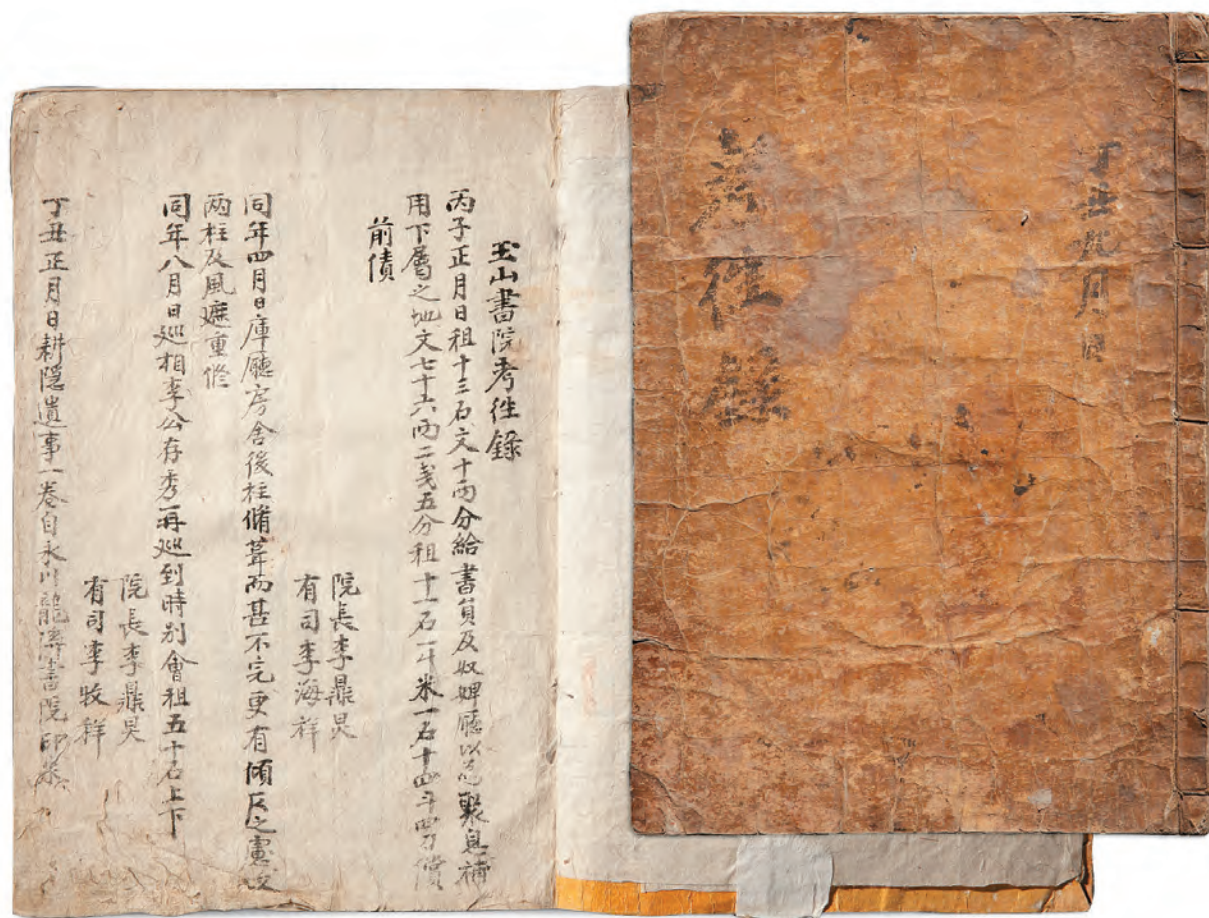 丁丑九月日
考徃錄
玉山書院考徃錄
丙子正月日租十三石文十兩分給書員及奴婢廳以為聚息補
用下屬之地文七十六兩二戔五分租十一石一斗米一石十四斗四刀償
前債
院長李鼎昊
有司李海祥
同年四月日庫廳房舍後柱脩葺而甚不完更有傾仄之慮改
兩柱及風遮重修
同年八月日巡相李公存秀再巡到時別會租五十石上下
院長李鼎昊
有司李牧祥
丁丑正月日耕隱遺事一卷自永川龍溪書院印來